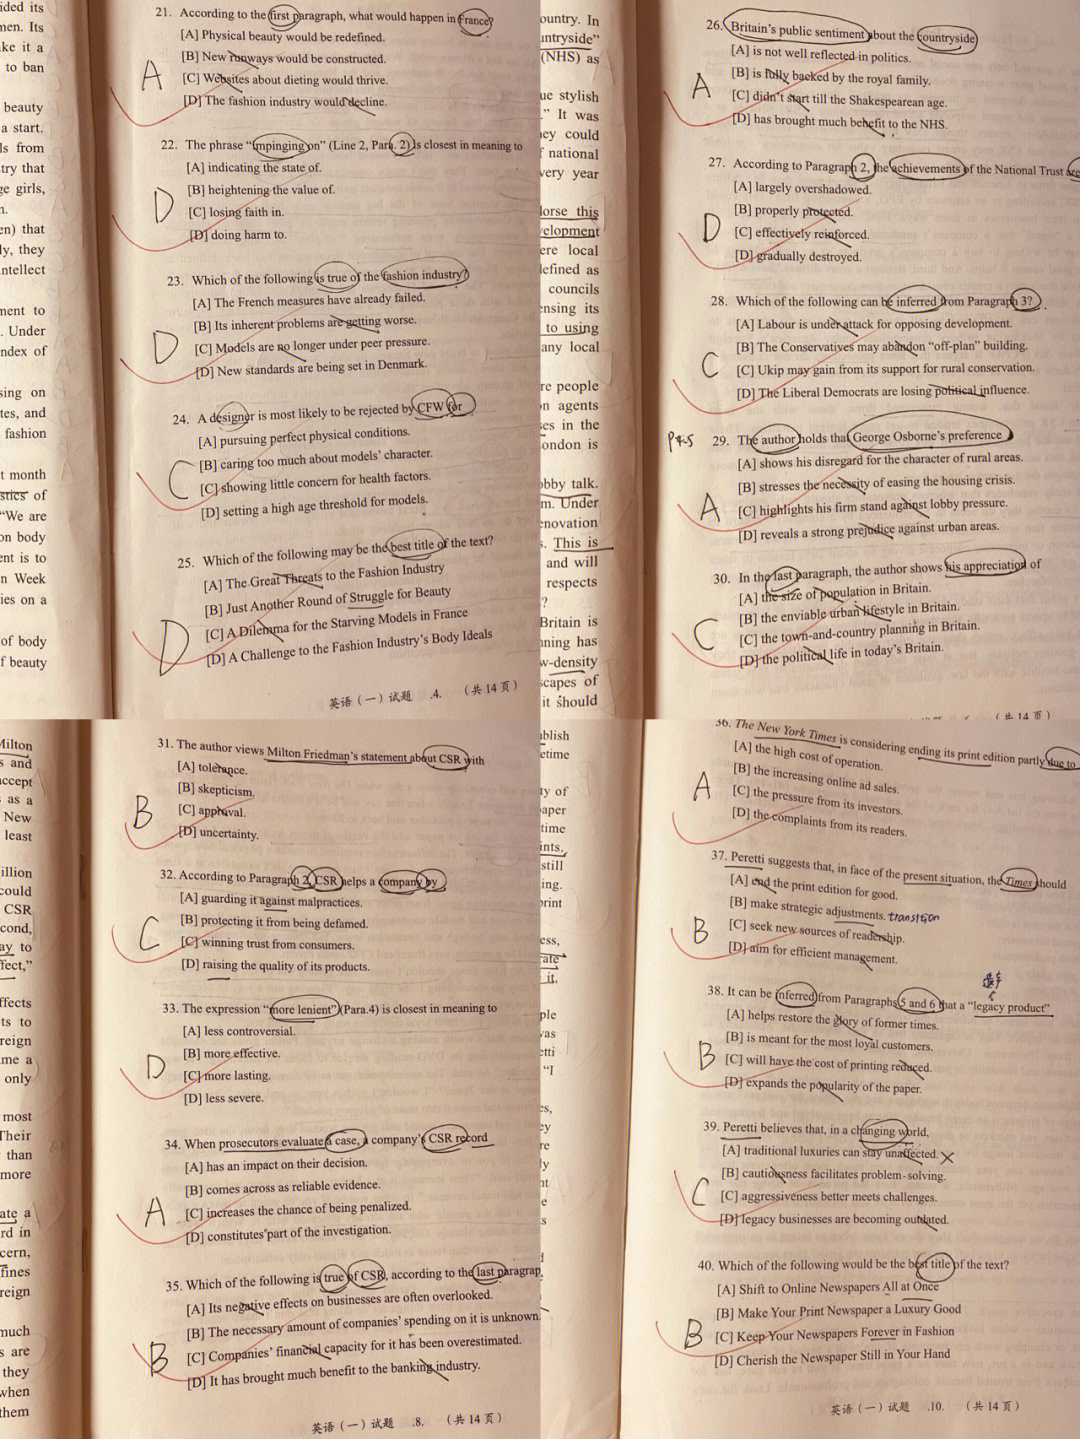 ided its
men. Its
ke it a
to ban
beauty
a start.
ls from
try that
ge girls,
n.
en) that
ly, they
ntellect
ment to
. Under
ndex of
sing on
tes, and
fashion
t month
stics of
"We are
on body
ent is to
n Week
ies on a
of body
f beauty
21. According to the first paragraph, what would happen in France?
[A] Physical beauty would be redefined.
[B] New runways would be constructed.
[C] Websites about dieting would thrive.
[D] The fashion industry would decline.
A
22. The phrase "impinging on" (Line 2, Para. 2) is closest in meaning to
[A] indicating the state of.
[B] heightening the value of.
[C] losing faith in.
[D] doing harm to.
D
23. Which of the following is true of the fashion industry?
[A] The French measures have already failed.
[B] Its inherent problems are getting worse.
[C] Models are no longer under peer pressure.
[D] New standards are being set in Denmark.
D
24. A designer is most likely to be rejected by CFW for
[A] pursuing perfect physical conditions.
[B] caring too much about models' character.
[C] showing little concern for health factors.
[D] setting a high age threshold for models.
C
25. Which of the following may be the best title of the text?
[A] The Great Threats to the Fashion Industry
[B] Just Another Round of Struggle for Beauty
[C] A Dilemma for the Starving Models in France
[D] A Challenge to the Fashion Industry's Body Ideals
D
英语（一）试题 .4. （共14页）
ountry. In
untryside"
(NHS) as
ue stylish
." It was
ney could
f national
very year
dorse this
velopment
ere local
defined as
councils
ensing its
to using
any local
re people
n agents
ses in the
ondon is
obby talk.
m. Under
enovation
s. This is
and will
respects
?
Britain is
nning has
w-density
scapes of
it should
26. Britain's public sentiment about the countryside
[A] is not well reflected in politics.
[B] is fully backed by the royal family.
[C] didn't start till the Shakespearean age.
[D] has brought much benefit to the NHS.
A
27. According to Paragraph 2, the achievements of the National Trust are
[A] largely overshadowed.
[B] properly protected.
[C] effectively reinforced.
[D] gradually destroyed.
D
28. Which of the following can be inferred from Paragraph 3?
[A] Labour is under attack for opposing development.
[B] The Conservatives may abandon "off-plan" building.
[C] Ukip may gain from its support for rural conservation.
[D] The Liberal Democrats are losing political influence.
C
29. The author holds that George Osborne's preference
[A] shows his disregard for the character of rural areas.
[B] stresses the necessity of easing the housing crisis.
[C] highlights his firm stand against lobby pressure.
[D] reveals a strong prejudice against urban areas.
A
30. In the last paragraph, the author shows his appreciation of
[A] the size of population in Britain.
[B] the enviable urban lifestyle in Britain.
[C] the town-and-country planning in Britain.
[D] the political life in today's Britain.
C
Milton
s and
accept
as a
New
least
illion
could
CSR
cond,
ay to
fect,"
ffects
ts to
reign
me a
only
most
Their
than
more
ate a
rd in
cern,
fines
reign
much
s are
they
when
them
31. The author views Milton Friedman's statement about CSR with
[A] tolerance.
[B] skepticism.
[C] approval.
[D] uncertainty.
B
32. According to Paragraph 2, CSR helps a company by
[A] guarding it against malpractices.
[B] protecting it from being defamed.
[C] winning trust from consumers.
[D] raising the quality of its products.
C
33. The expression "more lenient" (Para.4) is closest in meaning to
[A] less controversial.
[B] more effective.
[C] more lasting.
[D] less severe.
D
34. When prosecutors evaluate a case, a company's CSR record
[A] has an impact on their decision.
[B] comes across as reliable evidence.
[C] increases the chance of being penalized.
[D] constitutes part of the investigation.
A
35. Which of the following is true of CSR, according to the last paragrap
[A] Its negative effects on businesses are often overlooked.
[B] The necessary amount of companies' spending on it is unknown.
[C] Companies' financial capacity for it has been overestimated.
[D] It has brought much benefit to the banking industry.
B
英语（一）试题 .8. （共14页）
ablish
etime
ty of
aper
time
ints.
still
ing.
print
ess,
rate
it,
ple
was
etti
"I
es,
ey
re
ly
nt
e
s
36. The New York Times is considering ending its print edition partly due to
[A] the high cost of operation.
[B] the increasing online ad sales.
[C] the pressure from its investors.
[D] the complaints from its readers.
A
37. Peretti suggests that, in face of the present situation, the Times should
[A] end the print edition for good.
[B] make strategic adjustments. transition
[C] seek new sources of readership.
[D] aim for efficient management.
B
38. It can be inferred from Paragraphs 5 and 6 that a "legacy product"
[A] helps restore the glory of former times.
[B] is meant for the most loyal customers.
[C] will have the cost of printing reduced.
[D] expands the popularity of the paper.
B
39. Peretti believes that, in a changing world,
[A] traditional luxuries can stay unaffected.
[B] cautiousness facilitates problem-solving.
[C] aggressiveness better meets challenges.
[D] legacy businesses are becoming outdated.
C
40. Which of the following would be the best title of the text?
[A] Shift to Online Newspapers All at Once
[B] Make Your Print Newspaper a Luxury Good
[C] Keep Your Newspapers Forever in Fashion
[D] Cherish the Newspaper Still in Your Hand
B
英语（一）试题 .10. （共14页）